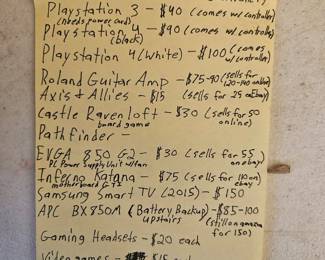 Playstation 3 - $40 (comes w/ controller)
(needs power cord)
Playstation 4 - $90 (comes w/ controller)
(black)
Playstation 4 (White) - $100 (comes
w/ controller)
Roland Guitar Amp - $75-90 (sells for
120-140 online)
Axis + Allies - $15 (sells for 25 on Ebay)
Castle Ravenloft - $30 (sells for 50
board game online)
Pathfinder -
EVGA 850 G2 - $30 (sells for 55
PC Power Supply Unit w/fan on ebay)
Inferno Katana - $75 (sells for 110 on
motherboard ebay)
Samsung Smart TV (2015) - $150
APC BX850M (Battery Backup) - $85-100
upstairs (still on amazon
for 150)
Gaming Headsets - $20 each
Video games - $15 each